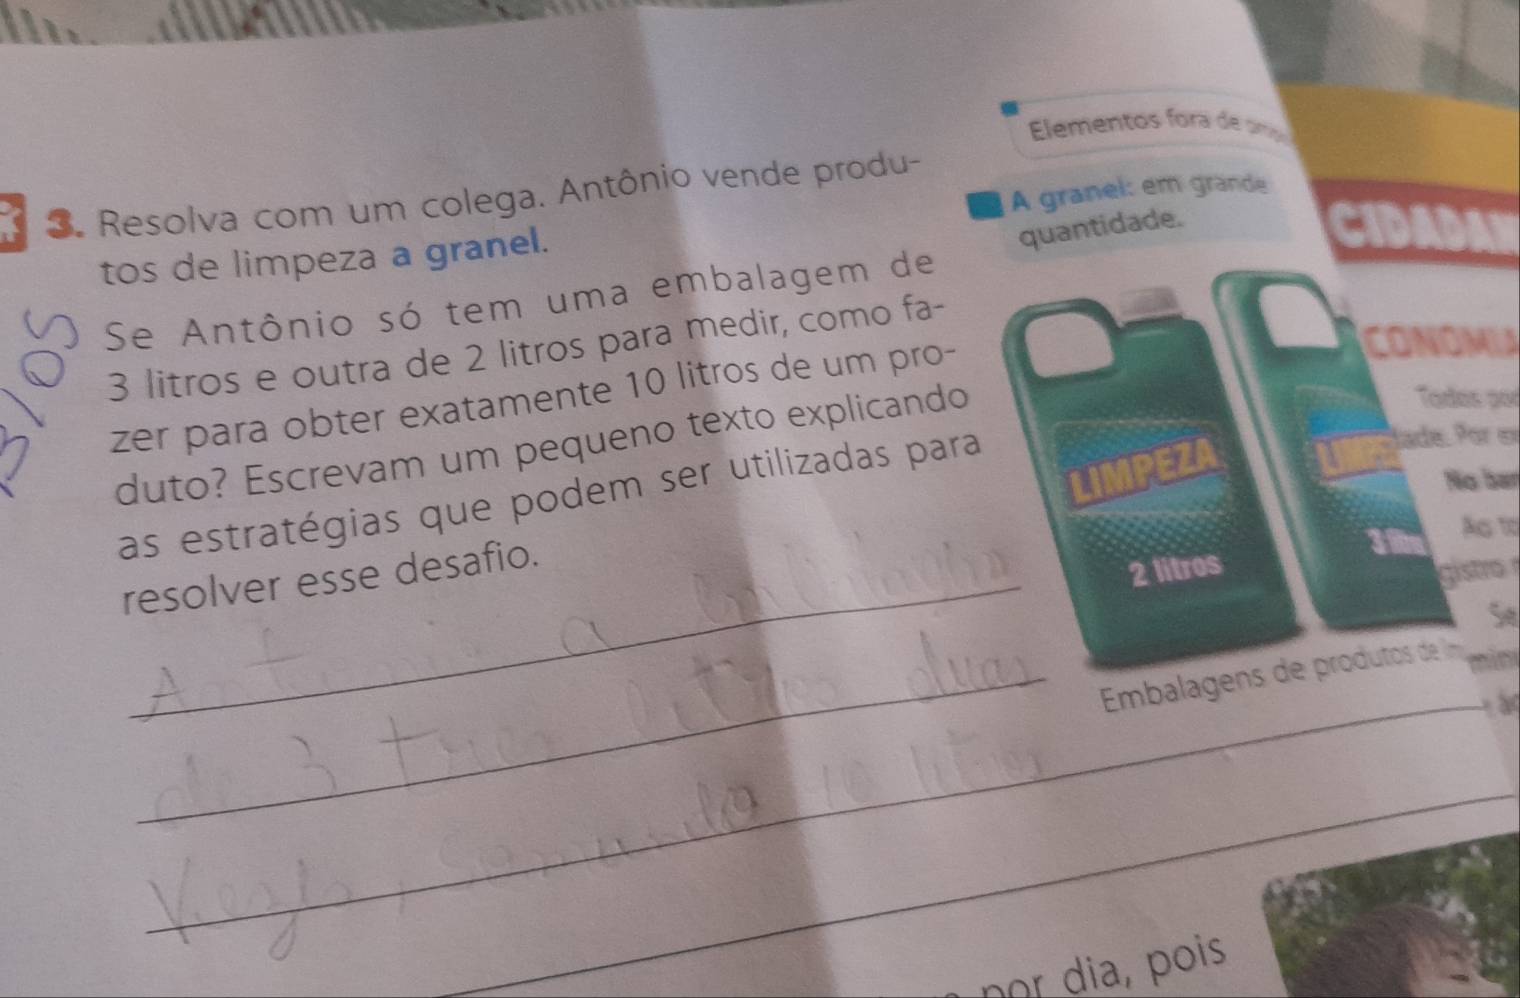 Elementos fora de
3. Resolva com um colega. Antônio vende produ-
tos de limpeza a granel.
A granel: em grande
quantidade.
Se Antônio só tem uma embalagem de
3 litros e outra de 2 litros para medir, como fa-
zer para obter exatamente 10 litros de um pro-
duto? Escrevam um pequeno texto explicando
as estratégias que podem ser utilizadas para
resolver esse desafio.
LIMPEZA
2 litros
3 litros
Embalagens de produtos de
Antonio a
de 3 tres litros duas
Vezes, somando 10 litros
CIDADAN
CONOMIA
Todos pod
dade. Por ex
No ban
Ao to
gistro
Se
por dia, pois